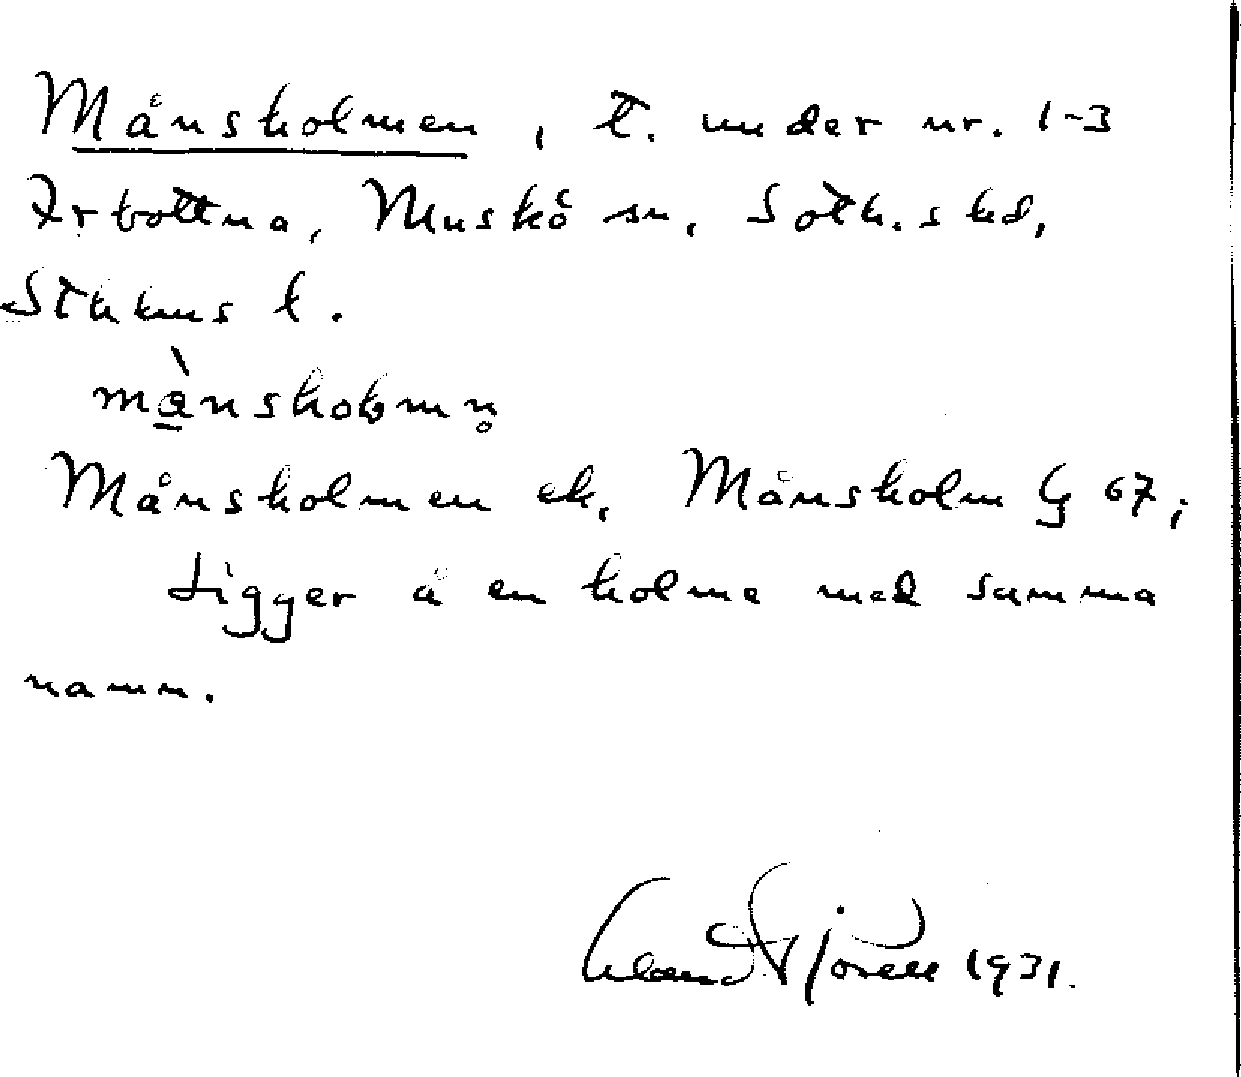 Månsholmen, t. under nr. 1-3
Arbottna, Muskö sn, Soth.s hd,
Sthlms l.
månsholmn̥
Månsholmen ek, Månsholm G 67;
Ligger å en holme med samma
namn.
1931.